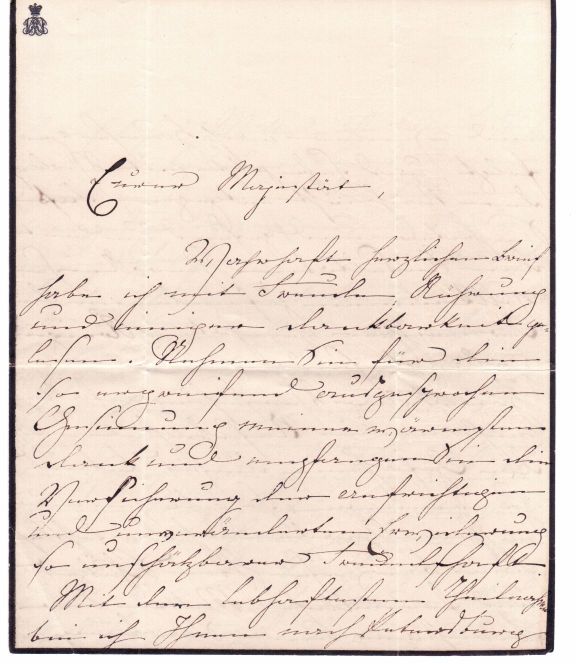 Eurer Majestät,
Wahrhaft herzlichen Brief
habe ich mit Freude, Rührung
und inniger Dankbarkeit ge-
lesen. Nehmen Sie für die
so ergreifend ausgesprochene
Gesinnung meinen wärmsten
Dank und empfangen Sie die
Versicherung der aufrichtigen
und unveränderten Erwiderung
so unschätzbarer Freundschaft
Mit der lebhaftesten Theilnahme
bin ich Ihnen nach Petersburg